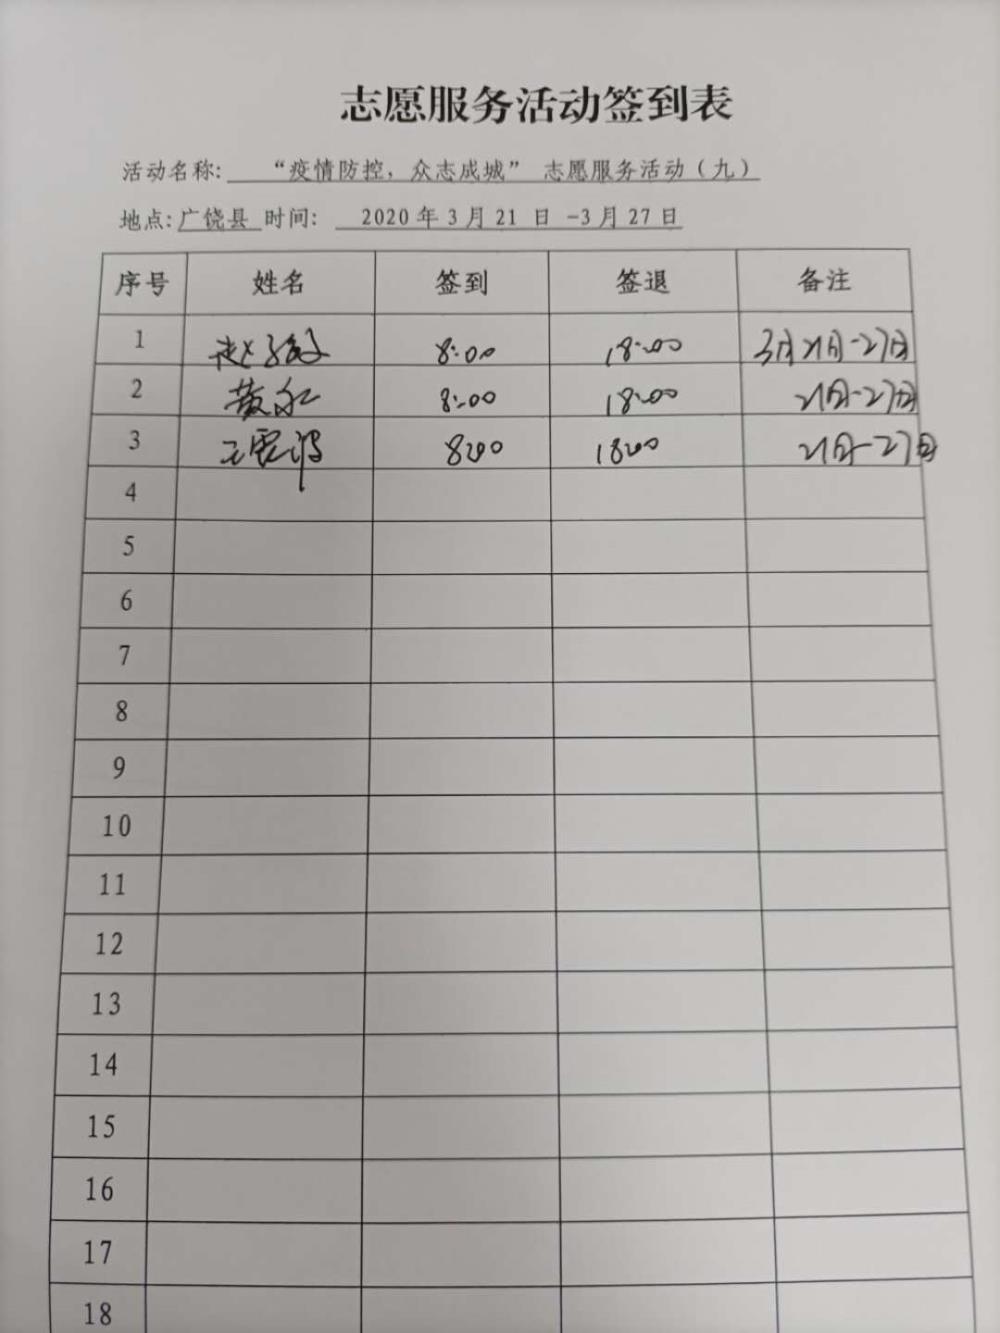 志愿服务活动签到表
活动名称: “疫情防控，众志成城” 志愿服务活动（九）
地点: 广饶县 时间: 2020 年 3 月 21 日 -3 月 27 日
序号 姓名 签到 签退 备注
1 8:00 18:00 3月21日-27日
2 黄 8:00 18:00 21日-27日
3 王 8:00 18:00 21日-27日
4
5
6
7
8
9
10
11
12
13
14
15
16
17
18